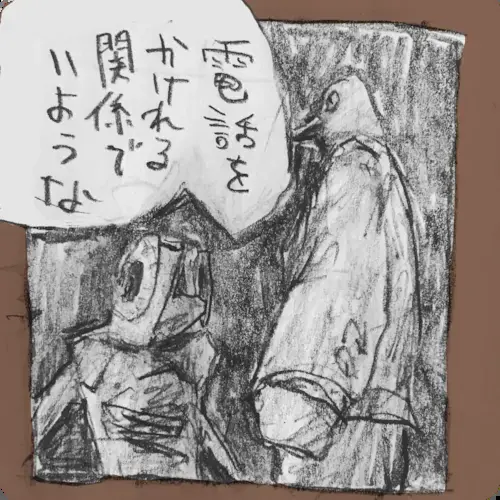 電話を
かけれる
関係で
いような
22